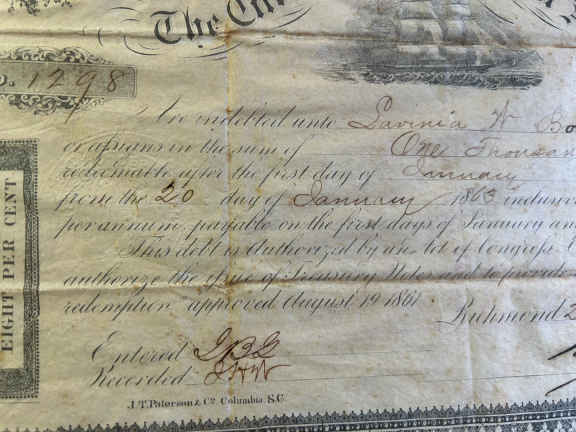 The Con
o. 1298
are indebted unto Lavinia W Bo
or assigns in the sum of One Thousan
redeemable after the first day of January
from the 20 day of January 1863 inclusive
per annum, payable on the first days of January an
This debt is authorized by an Act of Congress
authorize the issue of Treasury Notes and to provide
redemption" approved August 19 1861
Richmond 2
EIGHT PER CENT
Entered
Recorded
J.T. Paterson & Co. Columbia S.C.